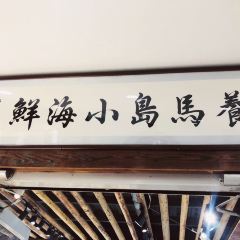 養馬島小海鮮